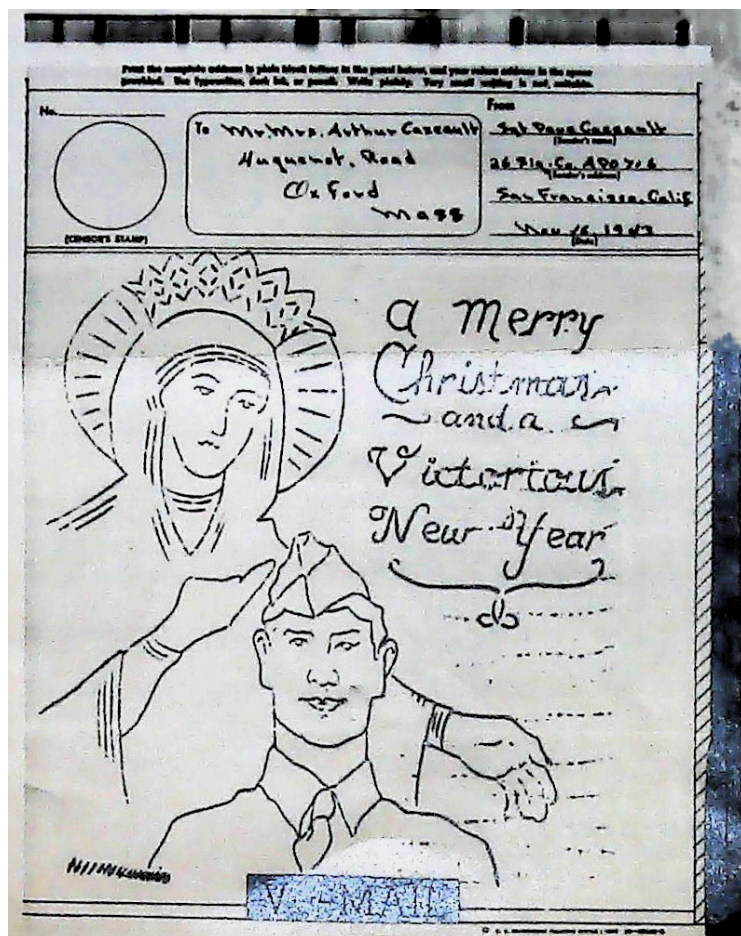 Print the complete address in plain block letters in the panel below, and your return address in the space
provided. Use typewriter, dark ink, or pencil. Write plainly. Very small writing is not suitable.
No.
From
To Mr. Mrs. Arthur Cazeault
Huguenot, Road
Oxford
Mass
Sgt Dave Cazeault
(Sender's name)
26 Sig. Co. APO 706
(Sender's address)
San Francisco, Calif
Nov 16, 1943
(Date)
(CENSOR'S STAMP)
a Merry
Christmas
and a
Victorious
New Year
V-MAIL